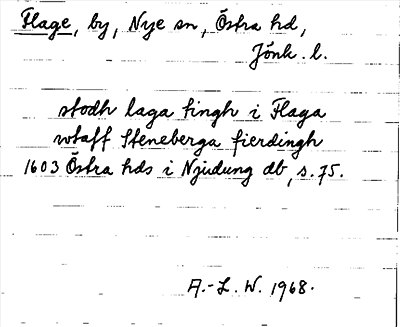 Flage, by, Nye sn, Östra hd,
Jönk. l.
stodh laga tingh i Flaga
wtaff Steneberga fierdingh
1603 Östra hds i Njudung db, s. 75.
A.-L. W. 1968.